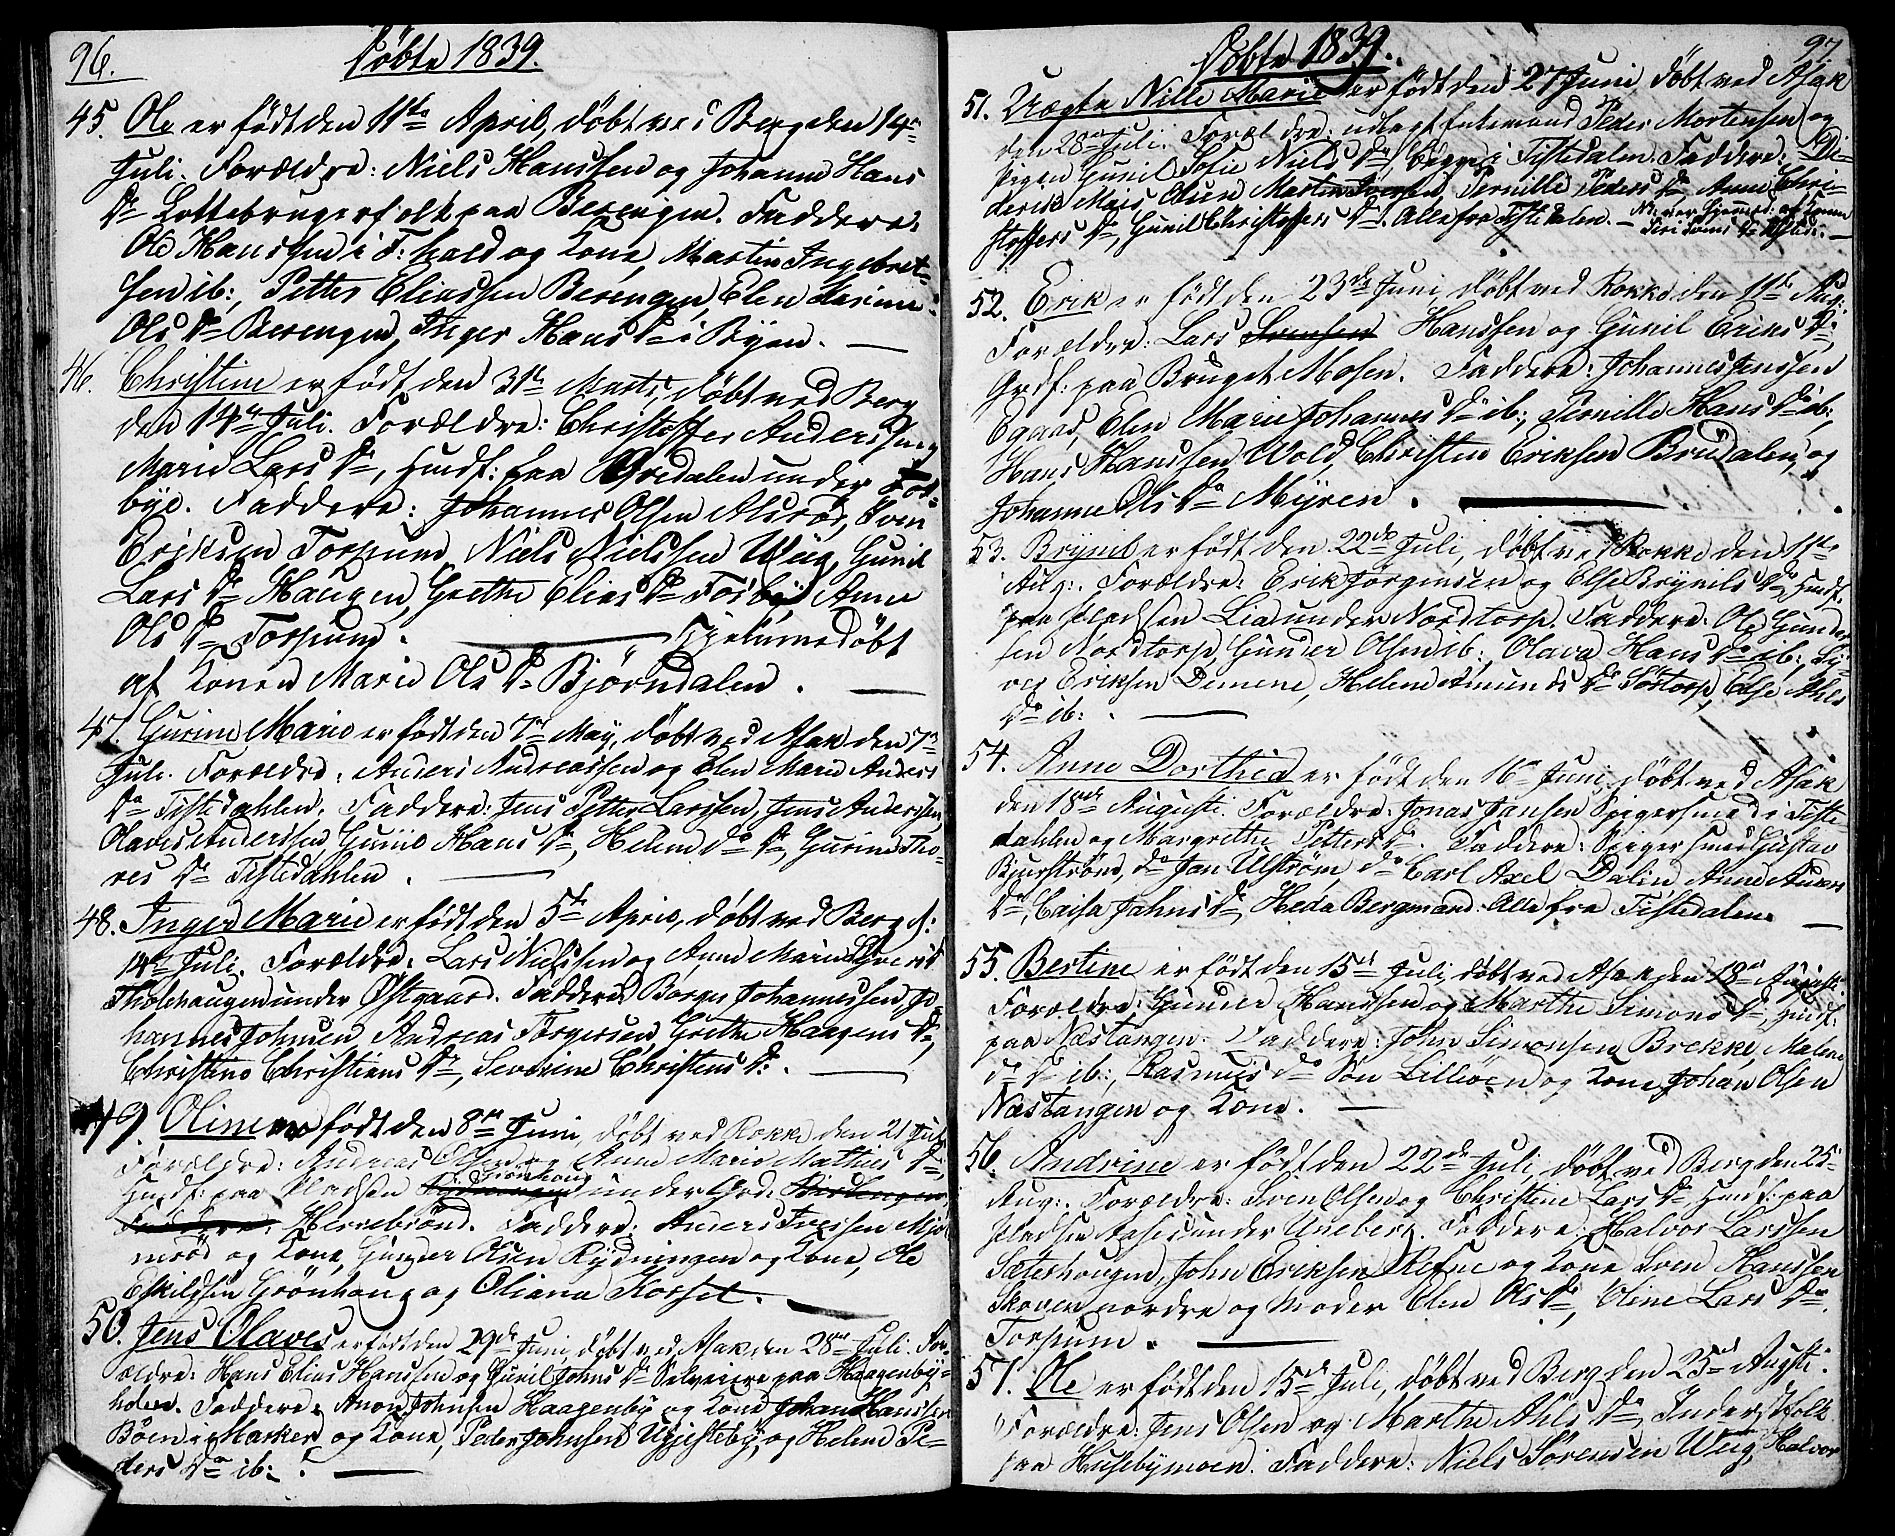 96.
Döbte 1839.
45. Ole er född den 11te April, döbt ved Berg den 14de
Juli. Forældre: Niels Hanssen og Johanne Hans
Dr Lottebrugerfolk paa Berengen. Faddere:
Ole Hanssen i F:hald og Kone, Martin Ingebret-
sen ib:, Petter Eliassen Berengen, Elen Karine
Ols Dr Berengen, Inger Hans Dr i Byen.
46. Christine er född den 31te Marts, döbt ved Berg
den 14de Juli. Forældre: Christoffer Anderssen og
Marie Lars Dr, Husf: paa Bredalen under Fos-
bye. Faddere: Johannes Olsen Alsrød, Sven
Eriksen Torpum, Niels Nielssen Wiig, Gunil
Lars Dr Haugen, Grethe Elias Dr Fosby, Anne
Ols Dr Torpum. Hjemmedöbt
af Konen Marie Ols Dr Bjørndalen.
47. Gurine Marie er född den 7de May, döbt ved Asak den 7de
Juli. Forældre: Anders Andreassen og Elen Marie Anders
Dr Tistedahlen. Faddere: Jens Petter Larssen, Jens Anderssen,
Olaves Anderssen, Gunil Hans Dr, Helene do Dr, Gurine Tho-
res Dr Tistedahlen.
48. Inger Marie er född den 5te April, döbt ved Berg d:
14de Juli. Forældre: Lars Nielssen og Anne Marie
Tholehaugen under Østgaard. Faddere: Borger Johannessen, Jo-
hannes Johnsen, Andreas Torgersen, Grethe Haagens Dr,
Christine Christians Dr, Severine Christens D:.
49. Oline er född den 8de Juni, döbt ved Rokke den 21 Juli
Forældre: Andreas Olsen og Anne Marie Mathies Dr
Husf: paa Pladsen Grönhaug under Grd:
Herrebrönd. Faddere: Anders Iversen Mjöl-
nerød og Kone, Gunder Olsen Rydningen og Kone, Ole
Eskildsen Grönhaug og Oliana Korset.
50. Jens Olaves er född den 29de Juni, döbt ved Asak den 28de Juli. For-
ældre: Hans Elias Hanssen og Gunil Johns Dr Selveiere paa Haagenby-
holen. Faddere: Amon Johnsen Haagenby og Kone, Johan Hanssen
Böen i Marker og Kone, Peder Johnsen Ugjesteby, og Helene Pe-
ders Dr ib:
97
Döbte 1839.
51. Uægte Nille Marie er född den 27 Juni, döbt ved Asak
den 28de Juli. Forældre: udlagt Enkemand Peder Mortensen og
Pigen Gunil Sofie Niels Dr, begge i Tistedalen. Faddere: Di-
derik Mois Olsen, Martin Iversen, Pernille Peders Dr, Anne Chri-
stoffers Dr, Gunil Christoffers Dr. Alle fra Tistedalen.
52. Erik er född den 23de Juni, döbt ved Rokke den 11te Aug:
Forældre: Lars Hanssen og Gunil Eriks Dr,
Grdf: paa Bruget Mosen. Faddere: Johannes Jenssen
Egaas, Elen Marie Johannes Dr ib:, Pernille Hans Dr ib:
Hans Hanssen Wold, Christen Eriksen Brudalen, og
Johanne Ols Dr Myren.
53. Brynel er född den 22de Juli, döbt ved Rokke den 11te
Aug:. Forældre: Erik Jörgensen og Else Brynils Dr, Husf.
paa Pladsen Lia under Nordtorp. Faddere: Ole Gunder-
sen Nordtorp, Gunder Olsen ib:, Olava Hans Dr ib:, Sy-
ver Eriksen Dimene, Helene Amunds Dr Sötorp, Else Nils
Dr ib:.
54. Anne Dorthea er född den 16de Juni, döbt ved Asak
den 18de Augusti. Forældre: Jonas Jansen Spigersmed i Tiste-
dahlen og Margrethe Petters Dr. Faddere: Spigersmed Gustav
Bjurström, do Jan Ulström, do Carl Axel Dalin, Anne Anders
Dr, Caisa Jahns Dr, Heda Bergmand. Alle fra Tistedalen.
55. Bertine er född den 15de Juli, döbt ved Asak den 18de Augusti
Forældre: Gunder Hanssen og Marthe Simons Dr, Husf:
paa Næstangen. Faddere: John Simonsen Brekke, Malene
do Dr ib:, Rasmus do Sön Lilleöen og Kone, Johan Olsen
Næstangen og Kone.
56. Andrine er född den 22de Juli, döbt ved Berg den 25de
Aug:. Forældre: Sven Olsen og Christine Lars Dr Husf: paa
Pladsen Aasen under Uneberg. Faddere: Halvor Larssen
Sæteshougen, John Eriksen Refne og Kone, Sven Hanssen
Skoven nordre og Moder Elen Ols Dr, Oline Lars Dr
Torpum.
57. Ole er född den 15de Juli, döbt ved Berg den 25de Augsti.
Forældre: Jens Olsen og Marthe Nils Dr, Inderstfolk
paa Husebymoen. Faddere: Niels Sörensen Wiig, Halvor